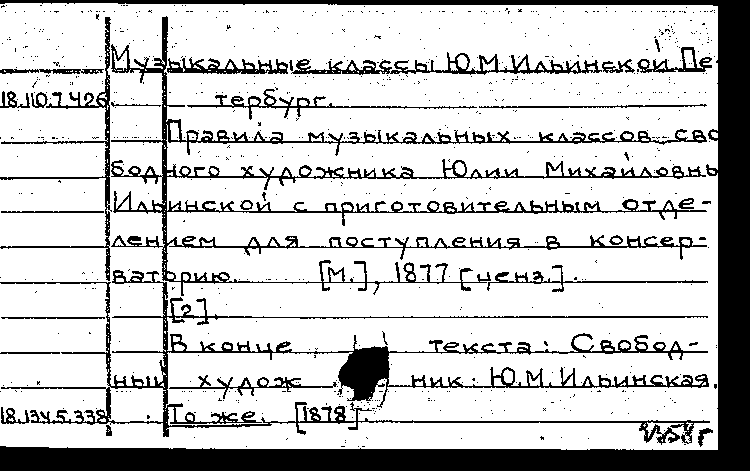 Музыкальные классы Ю.М.Ильинской Пе-
18.110.7.426. тербург.
Правила музыкальных классов сво
бодного художника Юлии Михайловны
Ильинской с приготовительным отде-
лением для поступления в консер-
ваторию. [М.], 1877 [ценз.].
[2].
В конце текста: Свобод-
ный худож ник Ю.М.Ильинская.
18.134.5.338 То же. [1878].